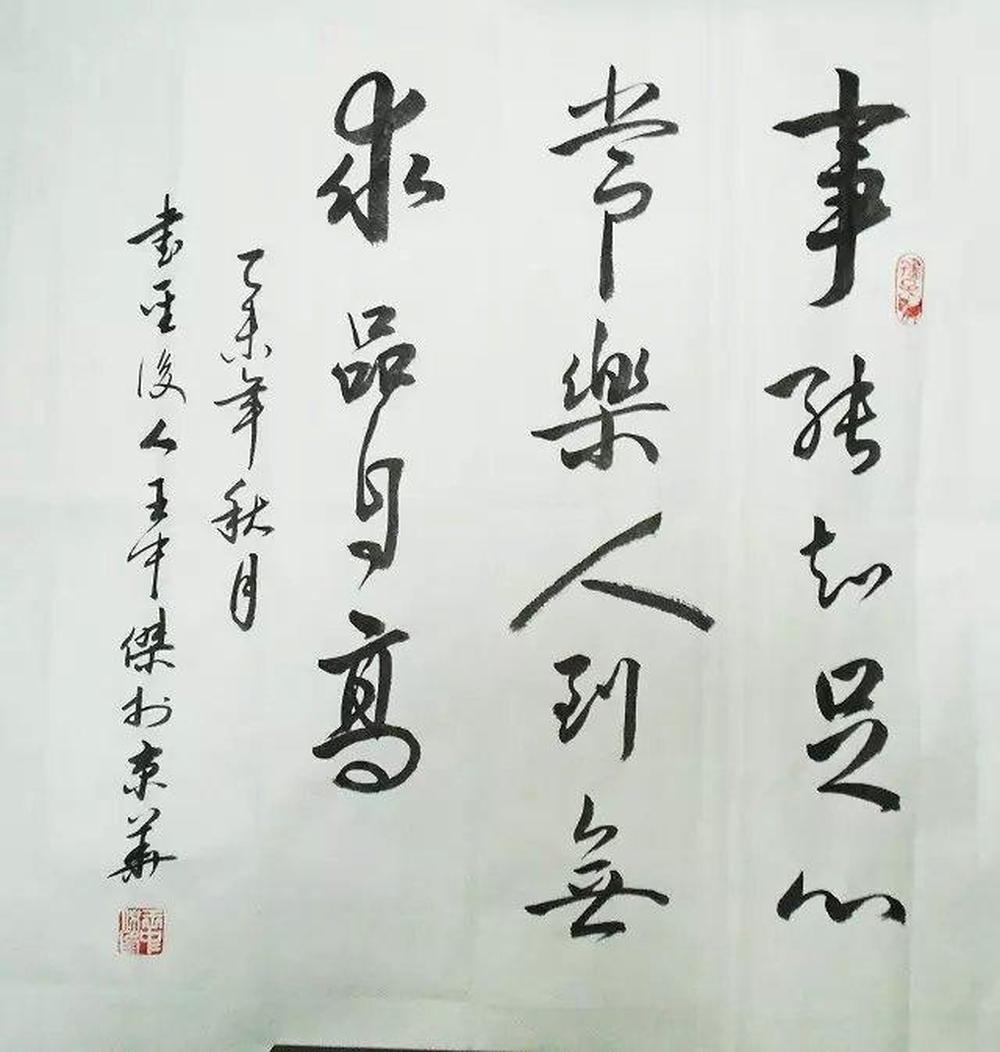 事能知足心
常樂人到無
求品自高
乙未年秋月
書聖後人王中傑於京華